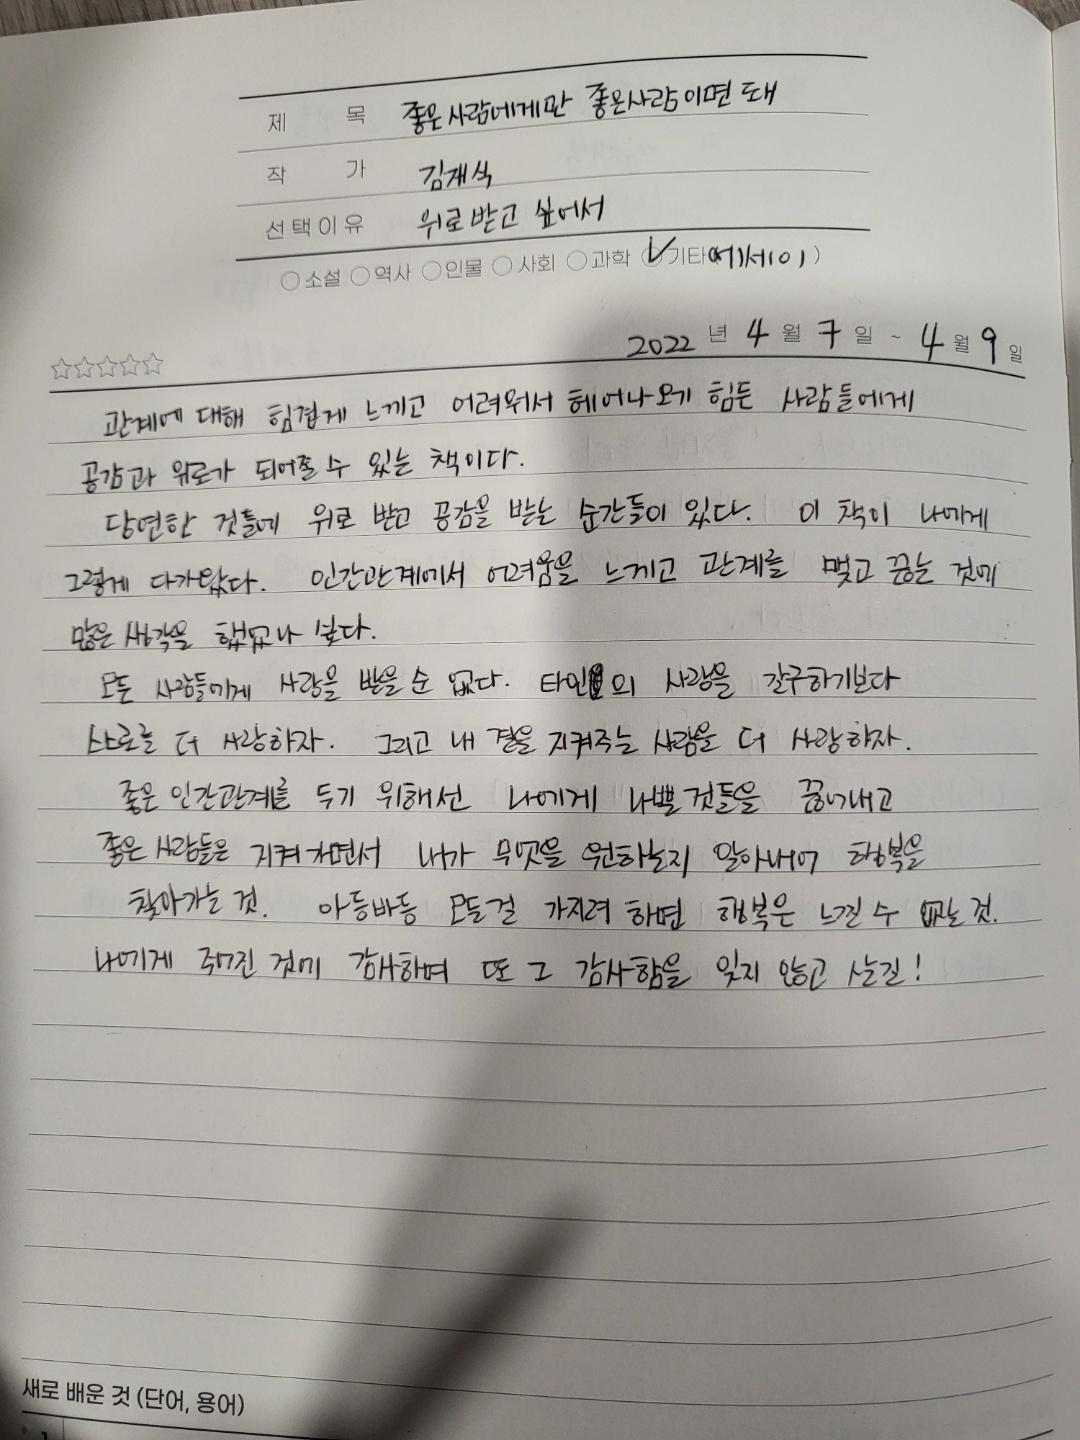 제 목 좋은사람에게만 좋은사람이면 돼
작 가 김재식
선택이유 위로받고 싶어서
소설 역사 인물 사회 과학 기타(에세이)
2022 년 4 월 7 일 ~ 4 월 9 일
관계에 대해 힘겹게 느끼고 어려워서 헤어나오기 힘든 사람들에게
공감과 위로가 되어줄 수 있는 책이다.
당연한 것들에 위로 받고 공감을 받는 순간들이 있다. 이 책이 나에게
그렇게 다가왔다. 인간관계에서 어려움을 느끼고 관계를 맺고 끊는 것에
많은 생각을 했었고나 싶다.
모든 사람들에게 사랑을 받을 순 없다. 타인의 사랑을 갈구하기보다
스스로를 더 사랑하자. 그리고 내 곁을 지켜주는 사람을 더 사랑하자.
좋은 인간관계를 두기 위해선 나에게 나쁠것들을 끊어내고
좋은 사람들은 지켜가면서 내가 무엇을 원하는지 알아내어 행복을
찾아가는 것. 아등바등 모든걸 가지려 하면 행복은 느낄 수 없는 것.
나에게 주어진 것에 감사하며 또 그 감사함을 잊지 않고 살길!
새로 배운 것 (단어, 용어)
1